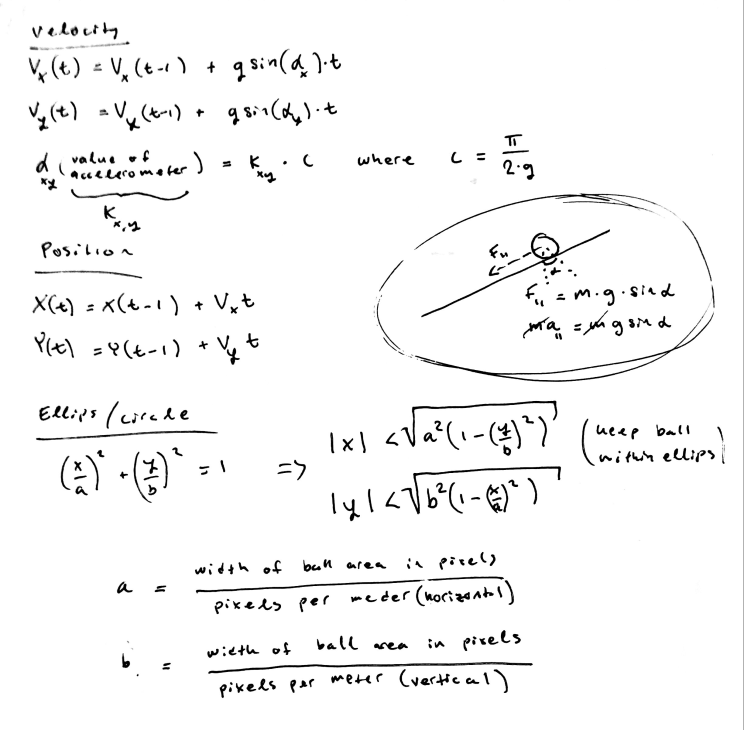 Velocity
Vx(t) = Vx(t-1) + g sin(αx)·t
Vy(t) = Vy(t-1) + g sin(αy)·t
αxy (value of accelerometer) = Kxy · C where C = π/(2·g)
Kx,y
Position
X(t) = X(t-1) + Vx t
Y(t) = Y(t-1) + Vy t
F11
α
F11 = m·g·sin α
ma11 = mg sin α
Ellips/circle
(x/a)² + (y/b)² = 1 => |x| < √(a²(1-(y/b)²)) (keep ball within ellips)
|y| < √(b²(1-(x/a)²))
a = width of ball area in pixels / pixels per meder (horizontal)
b = width of ball area in pixels / pixels per meter (vertical)